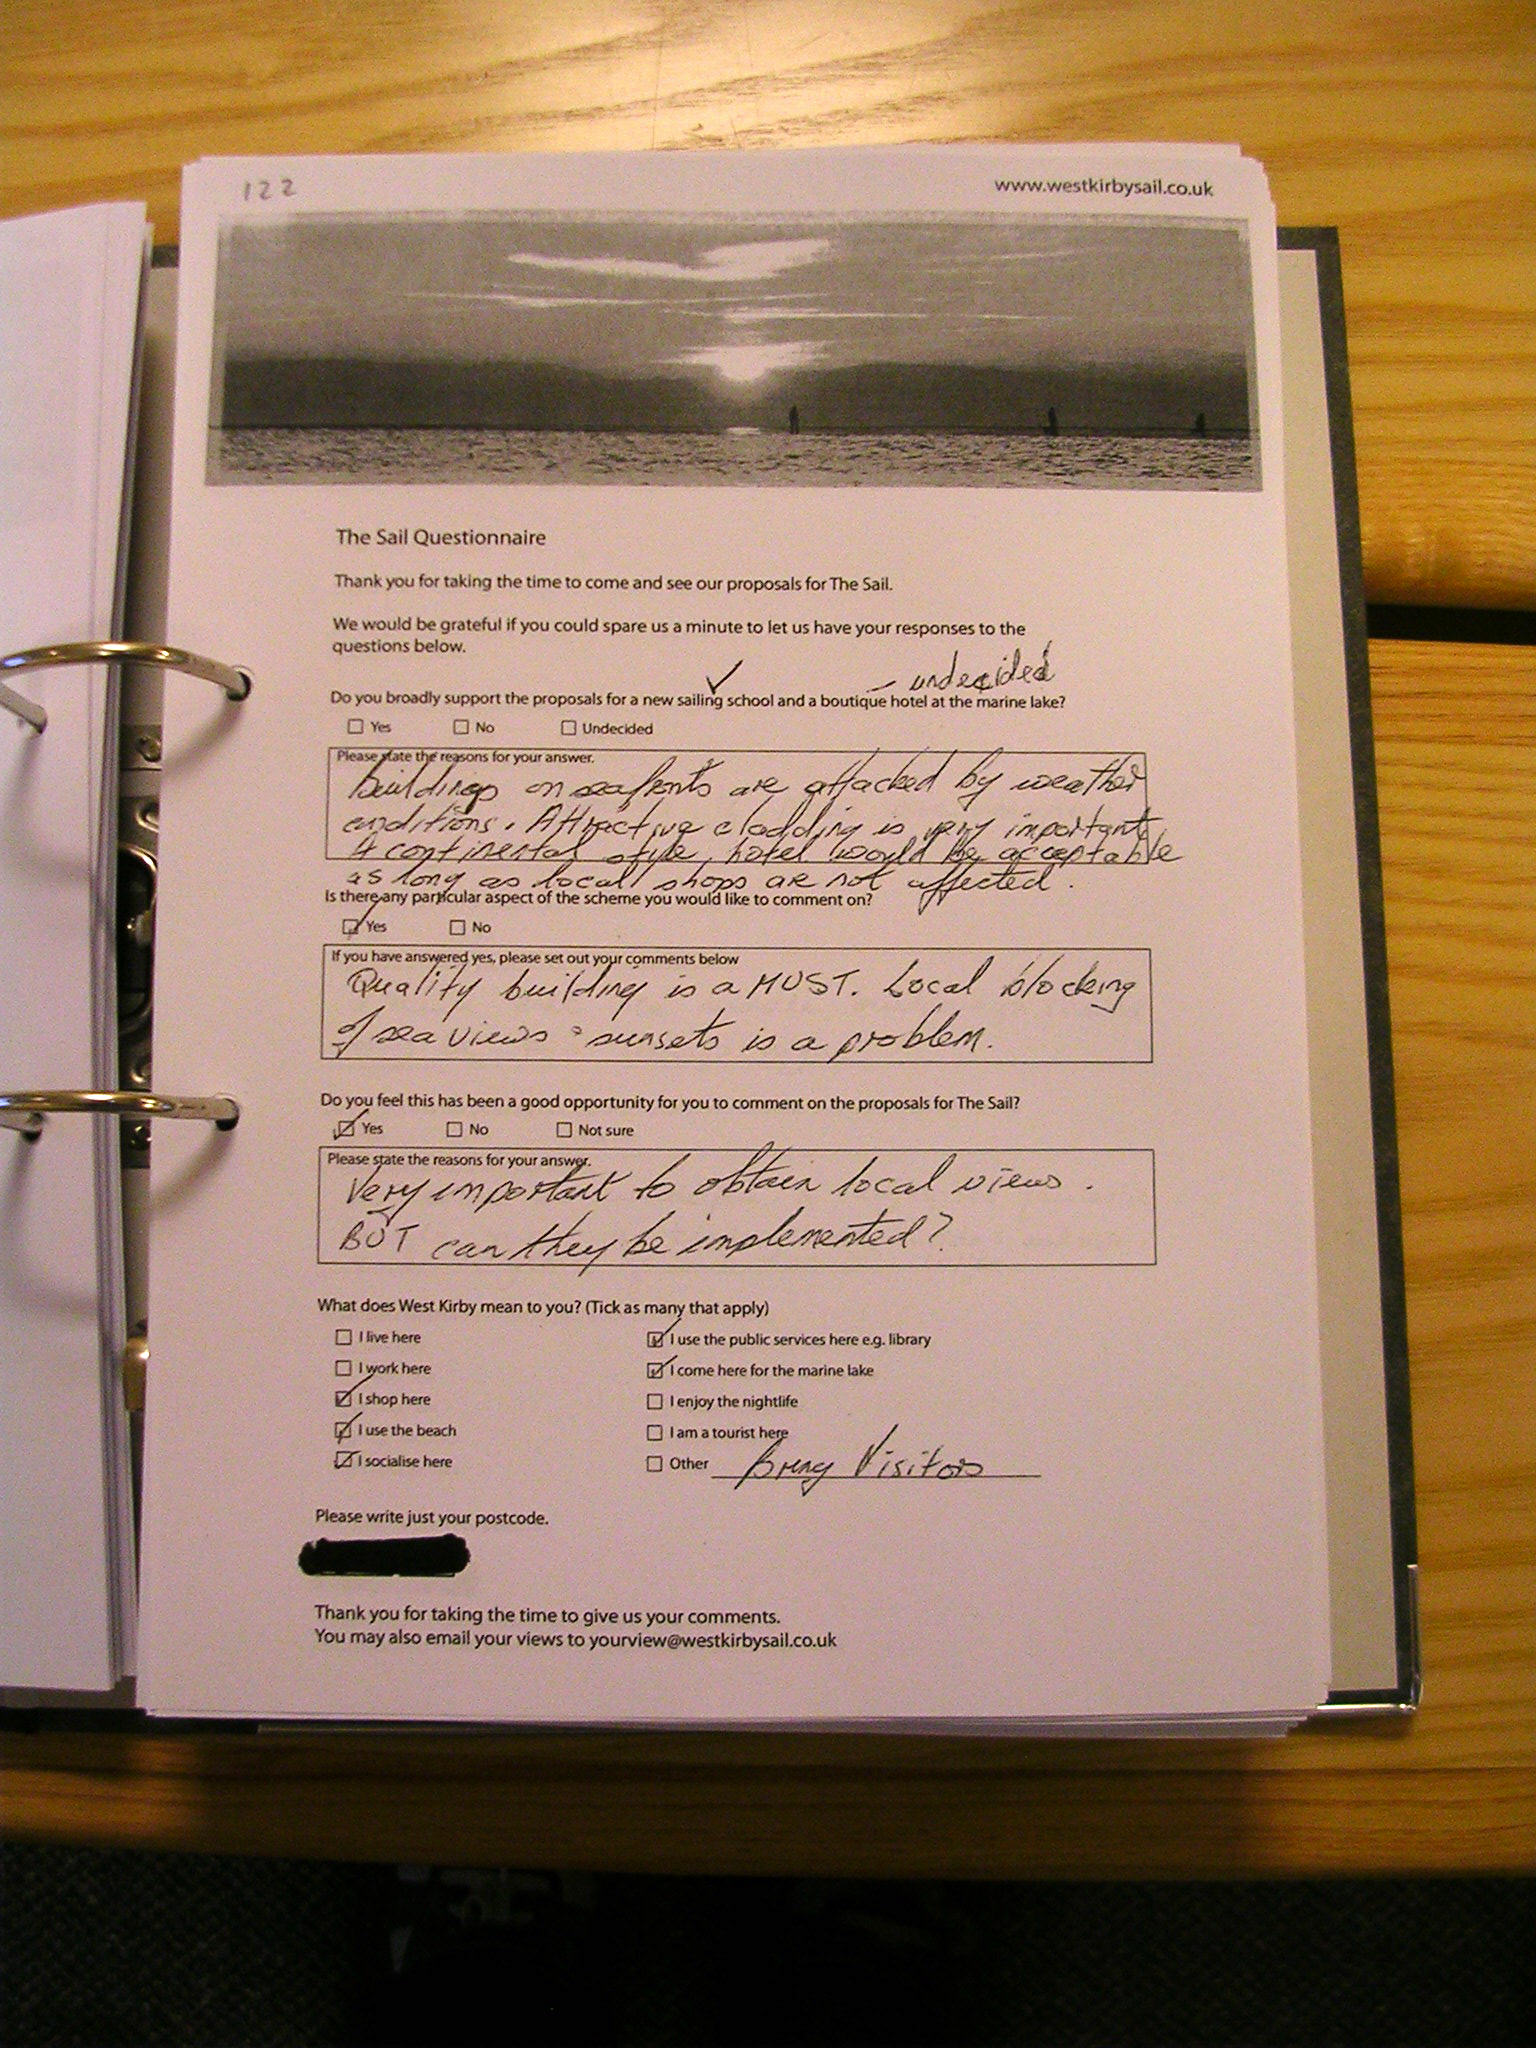 122
www.westkirbysail.co.uk
The Sail Questionnaire
Thank you for taking the time to come and see our proposals for The Sail.
We would be grateful if you could spare us a minute to let us have your responses to the
questions below.
✓ – undecided
Do you broadly support the proposals for a new sailing school and a boutique hotel at the marine lake?
Yes No Undecided
Please state the reasons for your answer.
Buildings on seafronts are attacked by weather
conditions. Attractive cladding is very important
A continental style, hotel would be acceptable
as long as local shops are not affected.
Is there any particular aspect of the scheme you would like to comment on?
Yes No
If you have answered yes, please set out your comments below
Quality building is a MUST. Local blocking
of sea views & sunsets is a problem.
Do you feel this has been a good opportunity for you to comment on the proposals for The Sail?
Yes No Not sure
Please state the reasons for your answer.
Very important to obtain local views.
BUT can they be implemented?
What does West Kirby mean to you? (Tick as many that apply)
I live here I use the public services here e.g. library
I work here I come here for the marine lake
I shop here I enjoy the nightlife
I use the beach I am a tourist here
I socialise here Other Bring Visitors
Please write just your postcode.
Thank you for taking the time to give us your comments.
You may also email your views to yourview@westkirbysail.co.uk